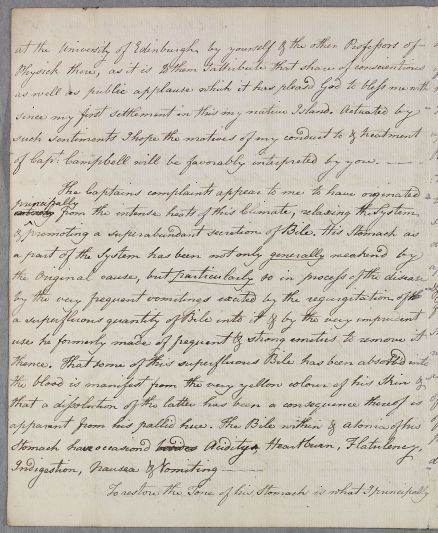 at the University of Edinburgh, by yourself & the other Professors of
Physick there, as it is to them I attribute that share of conscientious
as well as public applause which it has pleas'd God to bless me with
since my first settlement in this my native Island. Actuated by
such sentiments I hope the motives of my conduct to & treatment
of Capt. Campbell will be favorably interpreted by you. ——
The Captains complaints appear to me to have originated
principally
from the intense heats of this Climate, relaxing the System,
& promoting a superabundant secretion of Bile. His Stomach as
a part of the System has been not only generally weakend by
the original cause, but particularly so in process of the disease
by the very frequent vomitings excited by the regurgitation of the
a superfluous quantity of Bile into it & by the very imprudent
use he formerly made of frequent & strong emetics to remove it
thence. That some of this superfluous Bile has been absorbed into
the blood is manifest from the very yellow colour of his Skin &
that a dissolution of the latter has been a consequence thereof is
apparent from his pallid hue. The Bile within & atonia of his
Stomach have occasiond Acidity, Heartburn, Flatulency,
Indigestion, Nausea & Vomiting ——
To restore the Tone of his Stomach is what I principally